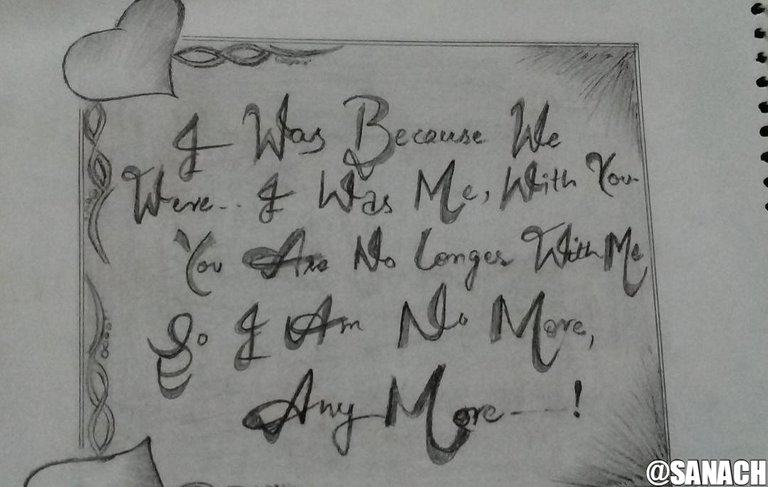 I Was Because We
Were.. I Was Me, With You.
You Are No Longer With Me
So I Am No More,
Any More----!
@SANACH